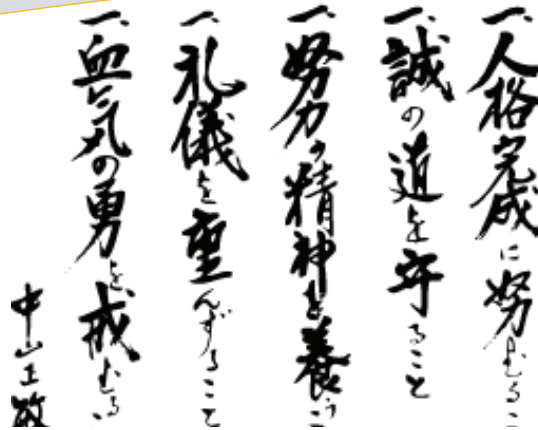 一、人格完成に努むるこ
一、誠の道を守ること
一、努力の精神を養うこ
一、礼儀を重んずること
一、血気の勇を戒むる
中山正敏